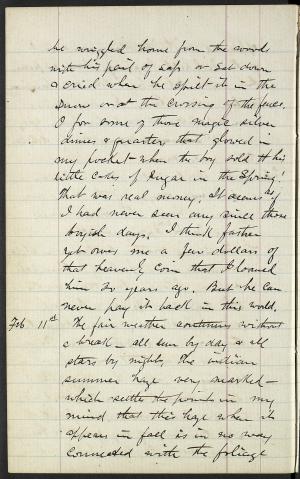 he wriggled home from the woods
with his pail of sap or sat down
& cried when he spilt it in the
snow or at the crossing of the fence.
O for some of those magic silver
dimes & quarters that glowed in
my pocket when the boy sold his
little cakes of sugar in the Spring!
that was real money. It seems as if
I had never seen any since those
boyish days. I think father
yet owes me a few dollars of
that heavenly coin that I loaned
him 30 years ago. But he can
never pay it back in this world.
Feb 11th The fair weather continues without
a break - all sun by day & all
stars by night. The indian
summer haze very marked -
which settles the point in my
mind that this haze when it
appears in fall is in no way
connected with the foliage